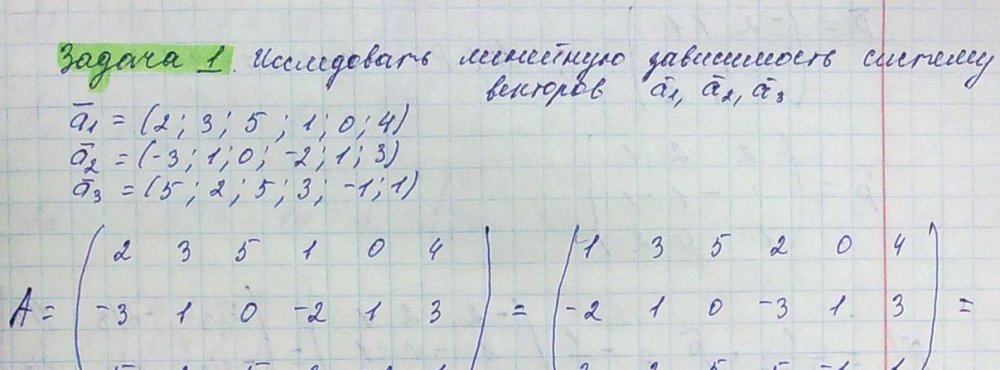 Задача 1. Исследовать линейную зависимость систему
векторов a̅1, a̅2, a̅3
a̅1 = (2; 3; 5; 1; 0; 4)
a̅2 = (-3; 1; 0; -2; 1; 3)
a̅3 = (5; 2; 5; 3; -1; 1)
2 3 5 1 0 4 1 3 5 2 0 4
A = -3 1 0 -2 1 3 = -2 1 0 -3 1 3 =